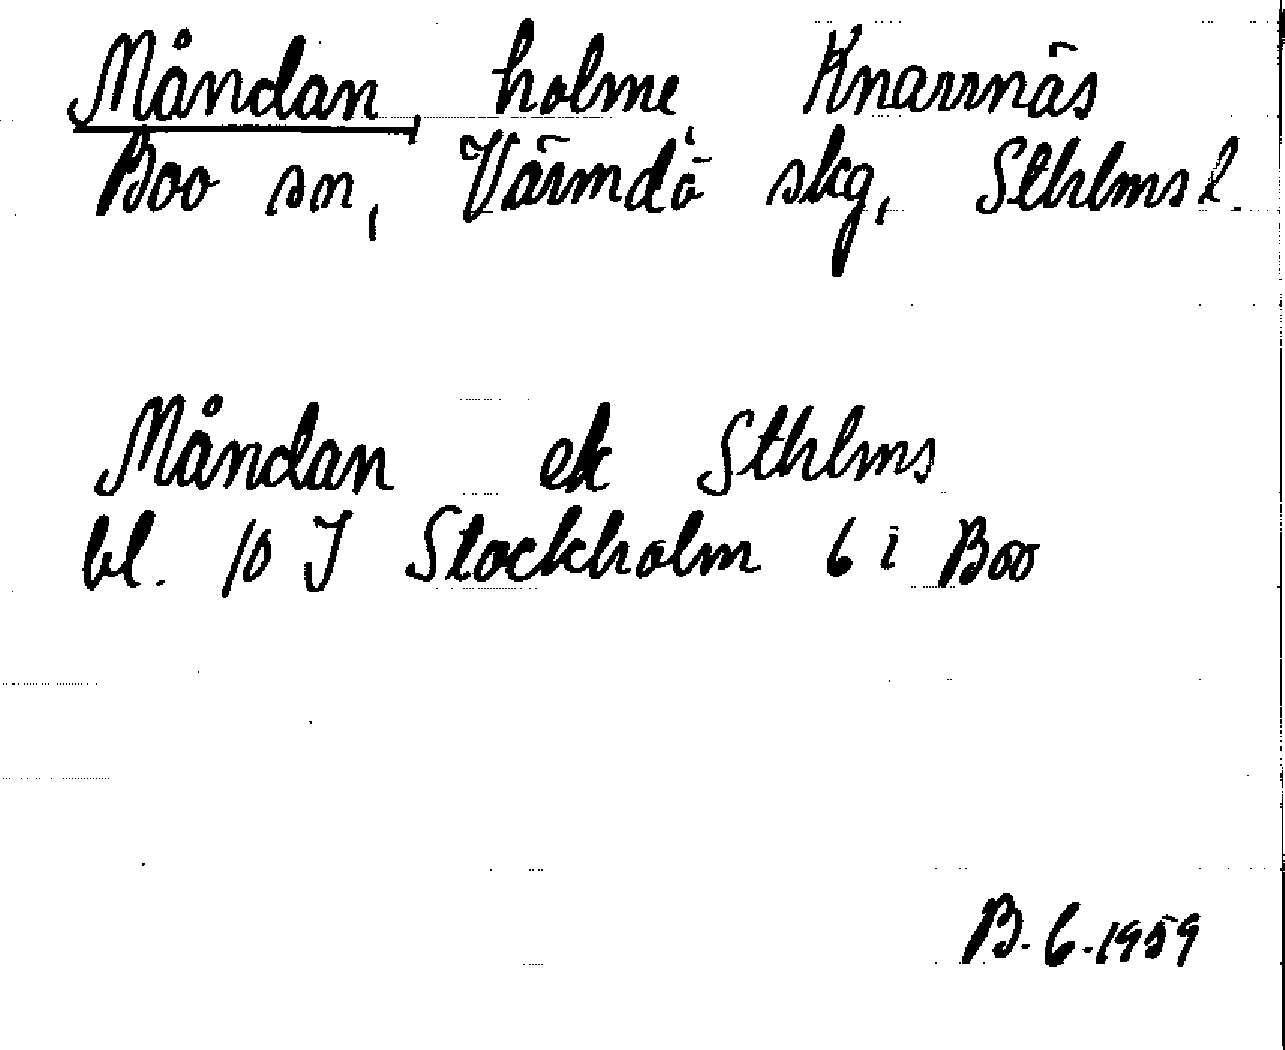 Måndan, holme Knarrnäs
Boo sn, Värmdö skg, Sthlms l.
Måndan ek Sthlms
bl. 10 J Stockholm 6 i Boo
B. 6. 1959